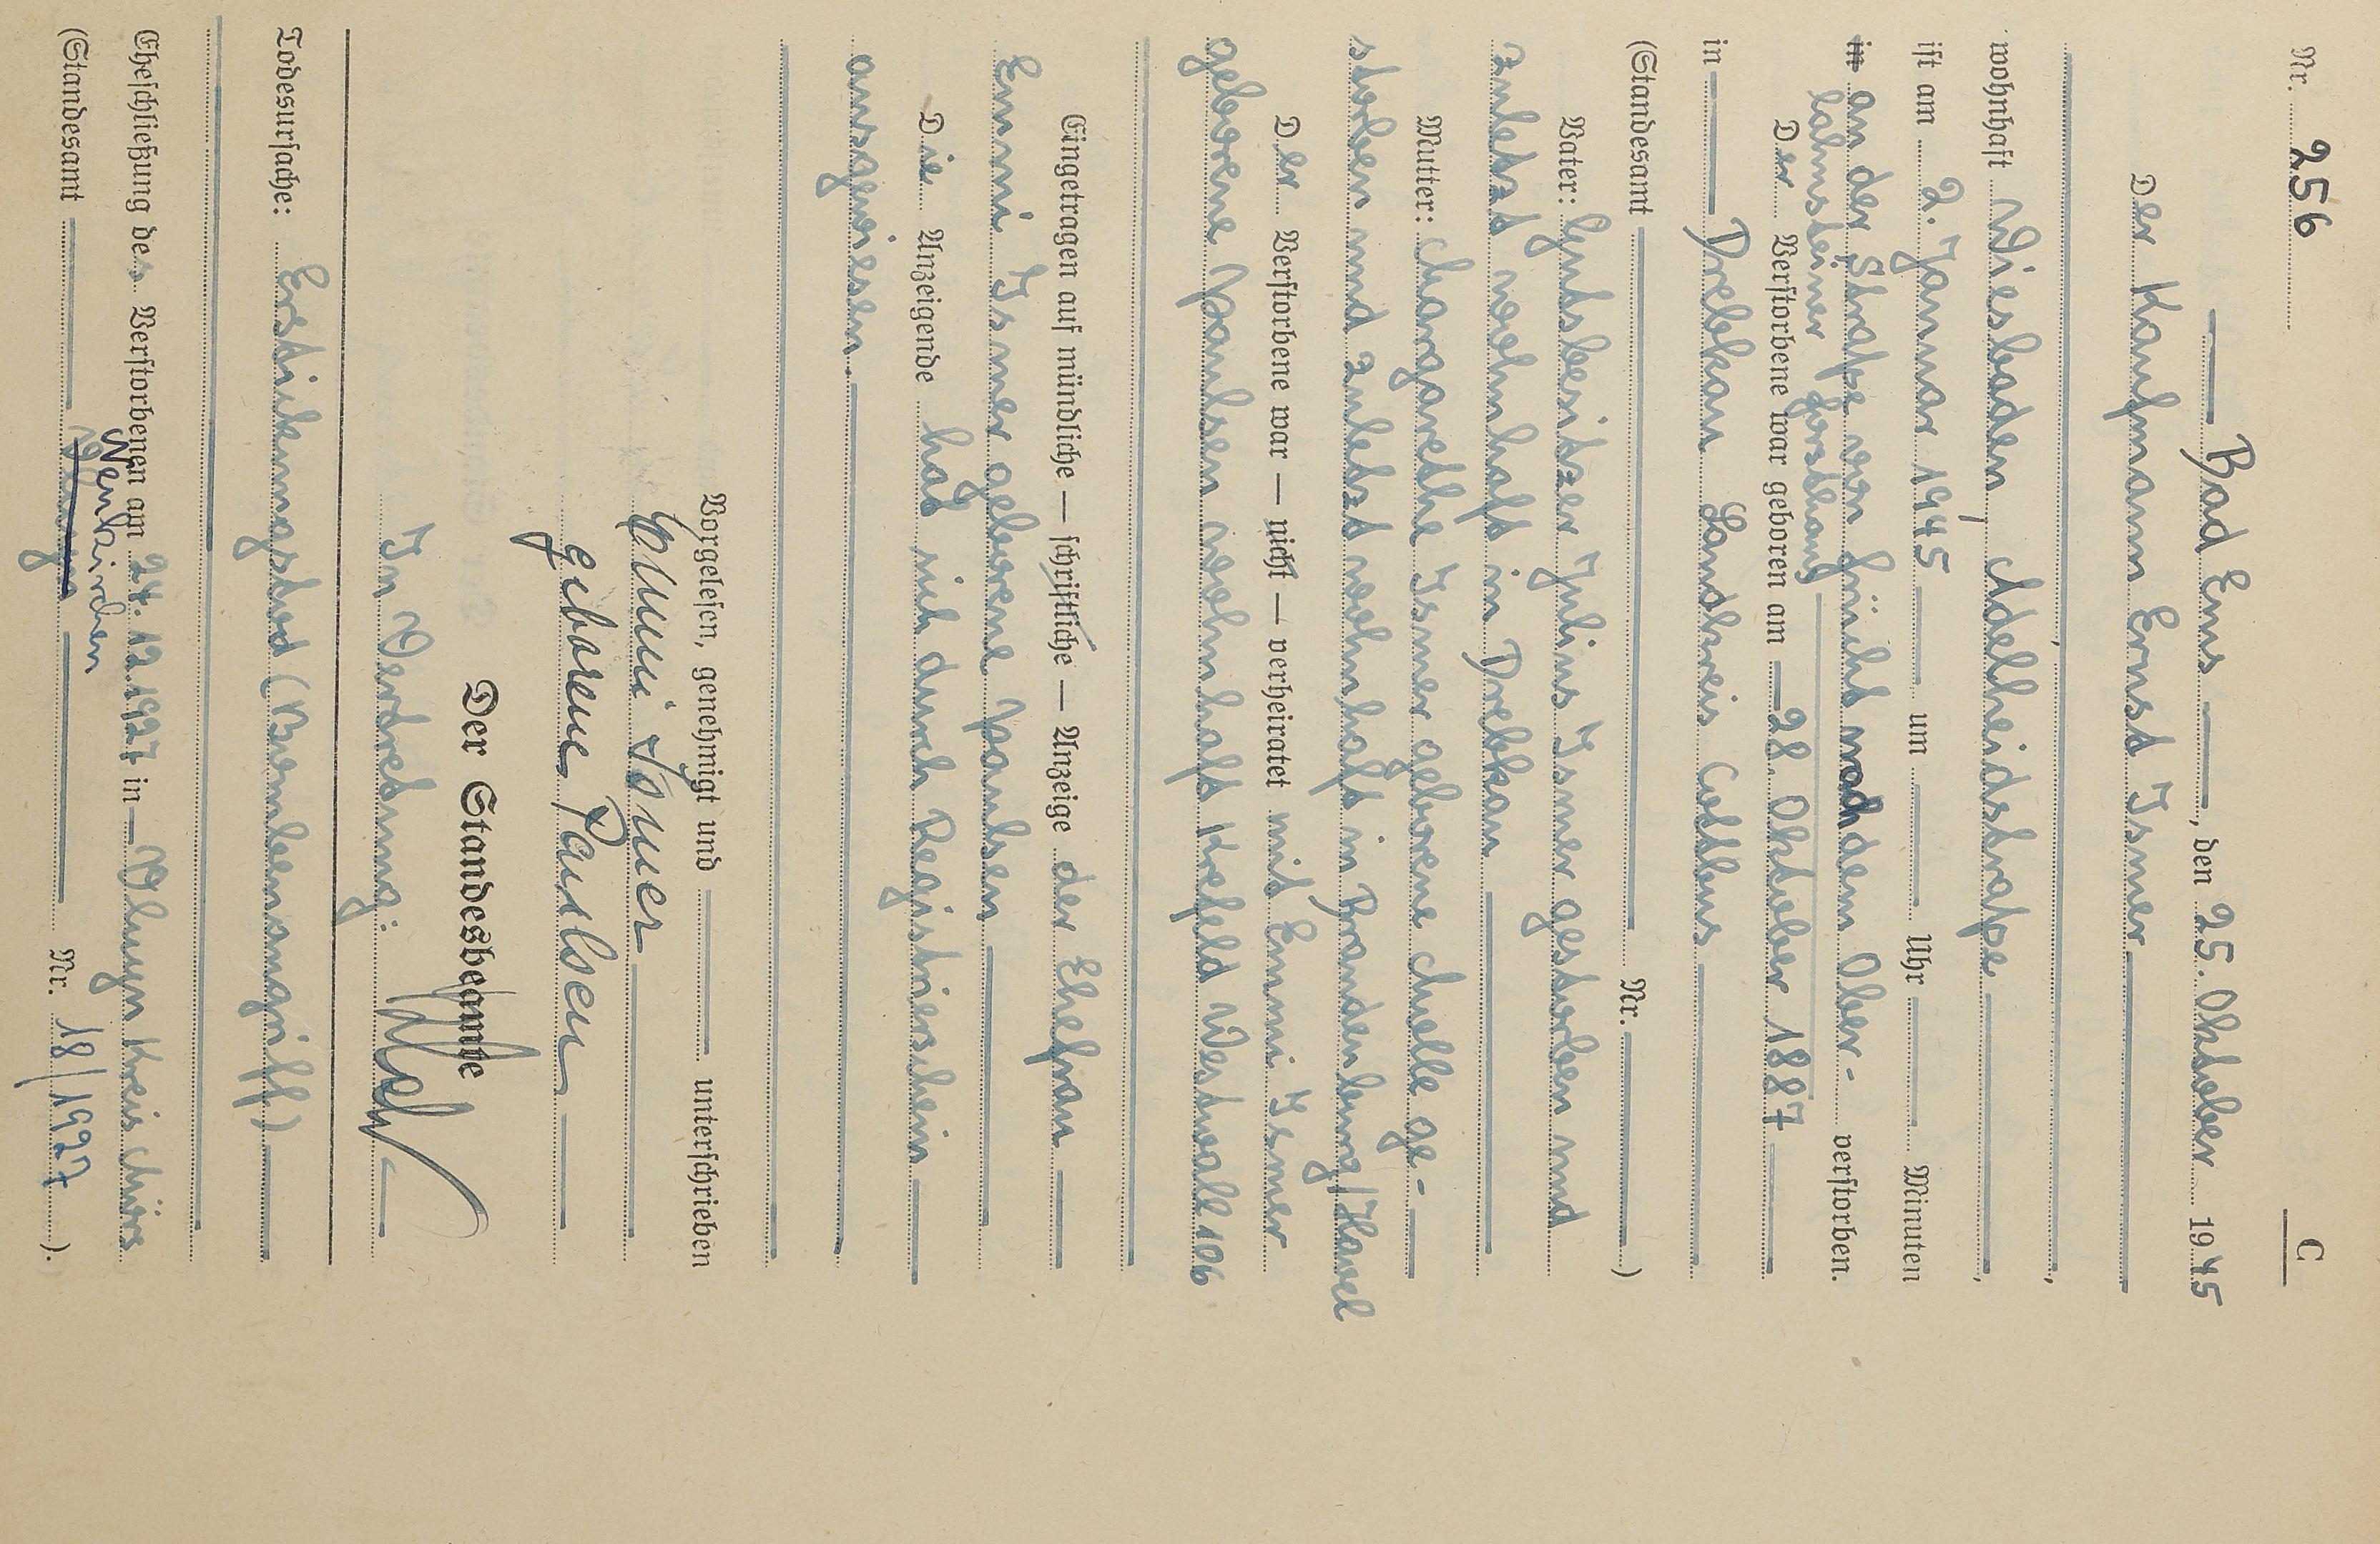 Nr. 256
C
Bad Ems, den 25. Oktober 1945
Der Kaufmann Ernst Ismer
wohnhaft Wiesbaden, Adelheidstraße
ist am 2. Januar 1945 um Uhr Minuten
in an der Straße von Frücht nach dem Ober- verstorben.
lahnsteiner Forsthaus
Der Verstorbene war geboren am 28. Oktober 1887
in Drebkau Landkreis Cottbus
(Standesamt Nr. )
Vater: Gutsbesitzer Julius Ismer gestorben und
zuletzt wohnhaft in Drebkau
Mutter: Margarethe Ismer geborene Muelle ge-
storben und zuletzt wohnhaft in Brandenburg/Havel
Der Verstorbene war — nicht — verheiratet mit Emmi Ismer
geborene Paulsen wohnhaft Krefeld Westwall 106
Eingetragen auf mündliche — schriftliche — Anzeige der Ehefrau
Emmi Ismer geborene Paulsen
Die Anzeigende hat sich durch Registrierschein
ausgewiesen.
Vorgelesen, genehmigt und unterschrieben
Emmi Ismer
geborene Paulsen
Der Standesbeamte
In Vertretung:
Todesursache: Erstickungstod (Bombenangriff)
Eheschließung des Verstorbenen am 24. 12. 1927 in Vluyn Kreis Mörs
Neukirchen
(Standesamt Vluyn Nr. 18/1927 ).